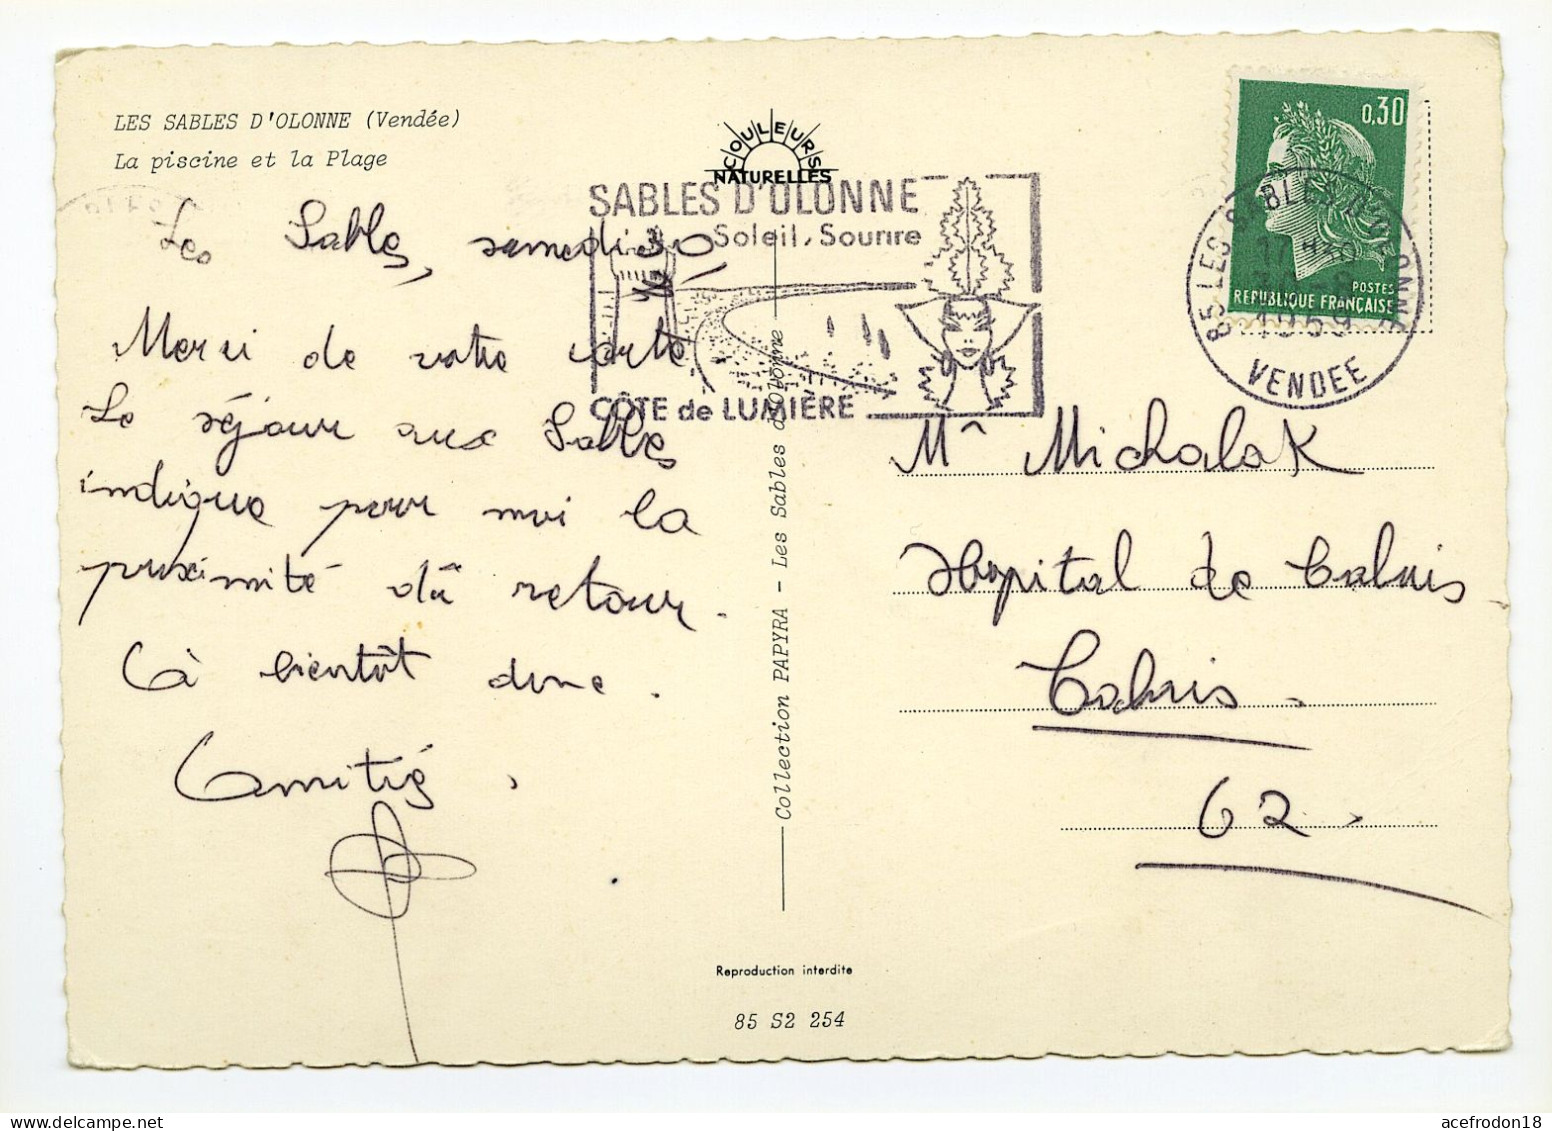 LES SABLES D'OLONNE (Vendée)
La piscine et la Plage
COULEURS
NATURELLES
SABLES D'OLONNE
Soleil, Sourire
CÔTE de LUMIÈRE
0,30
POSTES
REPUBLIQUE FRANÇAISE
85 LES SABLES D'OLONNE
1969
VENDEE
Les Sables, samedi 30
Merci de votre carte.
Le séjour aux Sables
indique pour moi la
proximité du retour.
A bientôt donc.
Amitié.
Collection PAPYRA - Les Sables d'Olonne
Mr Michalak
Hopital de Calais
Calais.
62.
Reproduction interdite
85 S2 254
acefrodon18